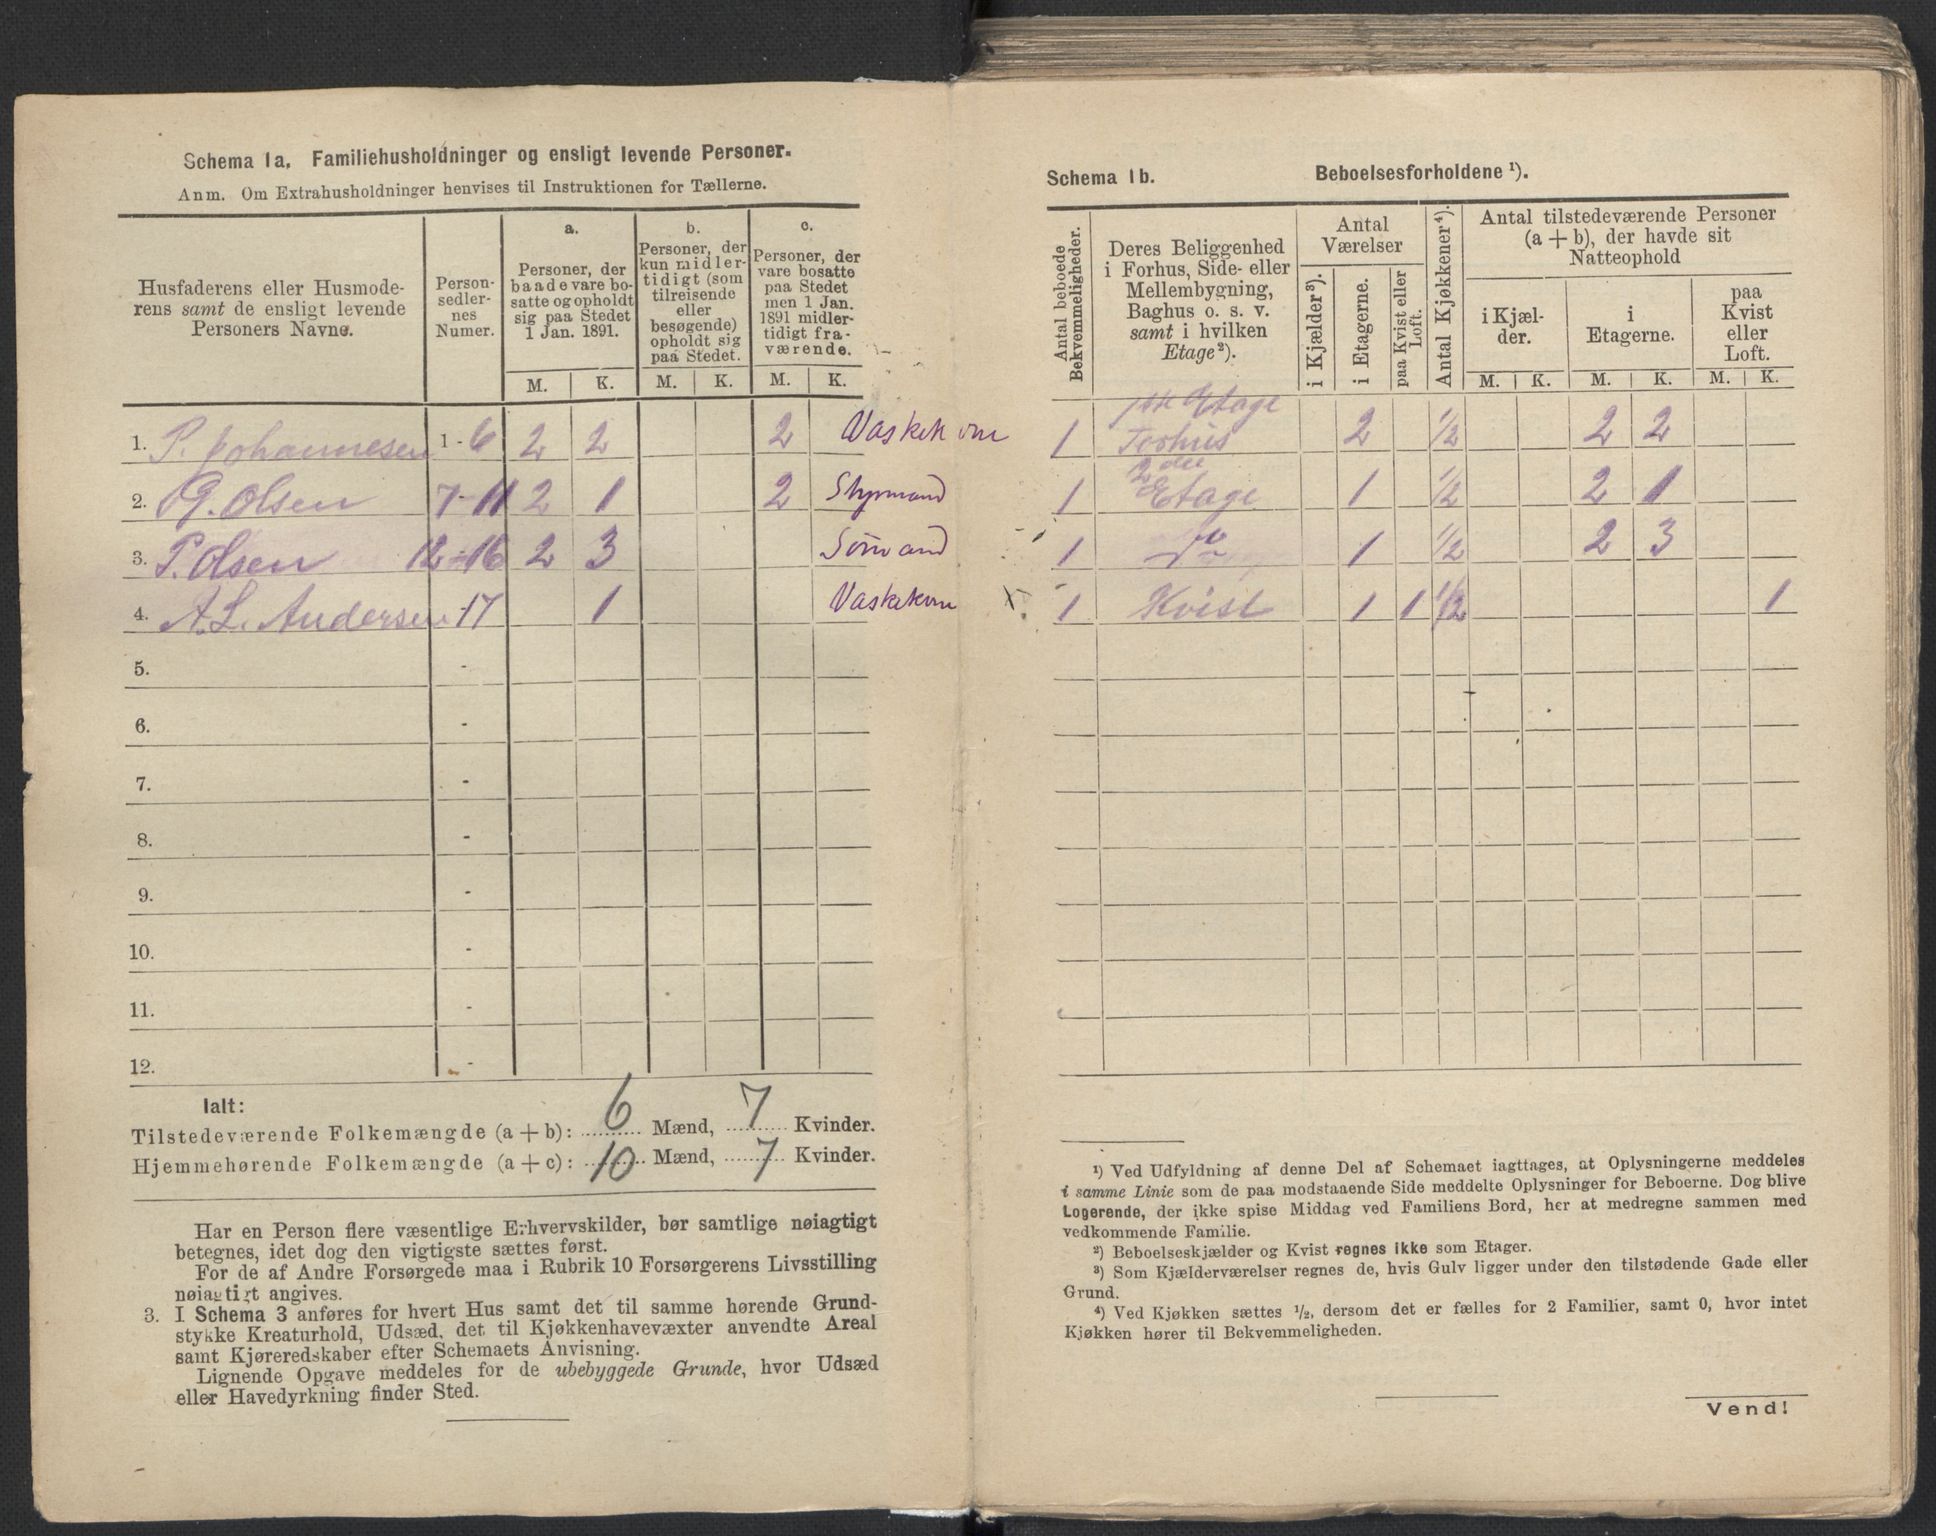 Schema 1a. Familiehusholdninger og ensligt levende Personer.
Anm. Om Extrahusholdninger henvises til Instruktionen for Tællerne.
Husfaderens eller Husmode-
rens samt de ensligt levende
Personers Navne.
Person-
sedler-
nes
Numer.
a.
Personer, der
baade vare bo-
satte og opholdt
sig paa Stedet
1 Jan. 1891.
b.
Personer, der
kun midler-
tidigt (som
tilreisende
eller
besøgende)
opholdt sig
paa Stedet.
c.
Personer, der
vare bosatte
paa Stedet
men 1 Jan.
1891 midler-
tidigt fra-
værende.
M. K. M. K. M. K.
1. P. Johannesen 1 - 6 2 2 2 Vaskekone
2. G. Olsen 7 - 11 2 1 2 Styrmand
3. P. Olsen 12 - 16 2 3 Sømand
4. A. L. Andersen - 17 1 Vaskekone
5. -
6. -
7. -
8. -
9. -
10. -
11. -
12. -
Ialt:
Tilstedeværende Folkemængde (a + b): 6 Mænd, 7 Kvinder.
Hjemmehørende Folkemængde (a + c): 10 Mænd, 7 Kvinder.
Har en Person flere væsentlige Erhvervskilder, bør samtlige nøiagtigt
betegnes, idet dog den vigtigste sættes først.
For de af Andre Forsørgede maa i Rubrik 10 Forsørgerens Livsstilling
nøiagtigt angives.
3. I Schema 3 anføres for hvert Hus samt det til samme hørende Grund-
stykke Kreaturhold, Udsæd, det til Kjøkkenhavevæxter anvendte Areal
samt Kjøreredskaber efter Schemaets Anvisning.
Lignende Opgave meddeles for de ubebyggede Grunde, hvor Udsæd
eller Havedyrkning finder Sted.
Schema 1b. Beboelsesforholdene ¹).
Antal beboede
Bekvemmeligheder.
Deres Beliggenhed
i Forhus, Side- eller
Mellembygning,
Baghus o. s. v.
samt i hvilken
Etage ²).
Antal
Værelser
i Kjælder ³).
i Etagerne.
paa Kvist eller
Loft.
Antal Kjøkkener ⁴).
Antal tilstedeværende Personer
(a + b), der havde sit
Natteophold
i Kjæl-
der.
i
Etagerne.
paa
Kvist
eller
Loft.
M. K. M. K. M. K.
1ste Etage
1 Forhus 2 1/2 2 2
2den
1 Etage 1 1/2 2 1
1 Do 1 1/2 2 3
X. 1 Kvist 1 1 1/2 1
¹) Ved Udfyldning af denne Del af Schemaet iagttages, at Oplysningerne meddeles
i samme Linie som de paa modstaaende Side meddelte Oplysninger for Beboerne. Dog blive
Logerende, der ikke spise Middag ved Familiens Bord, her at medregne sammen med
vedkommende Familie.
²) Beboelseskjælder og Kvist regnes ikke som Etager.
³) Som Kjælderværelser regnes de, hvis Gulv ligger under den tilstødende Gade eller
Grund.
⁴) Ved Kjøkken sættes ¹/₂, dersom det er fælles for 2 Familier, samt 0, hvor intet
Kjøkken hører til Bekvemmeligheden.
Vend!